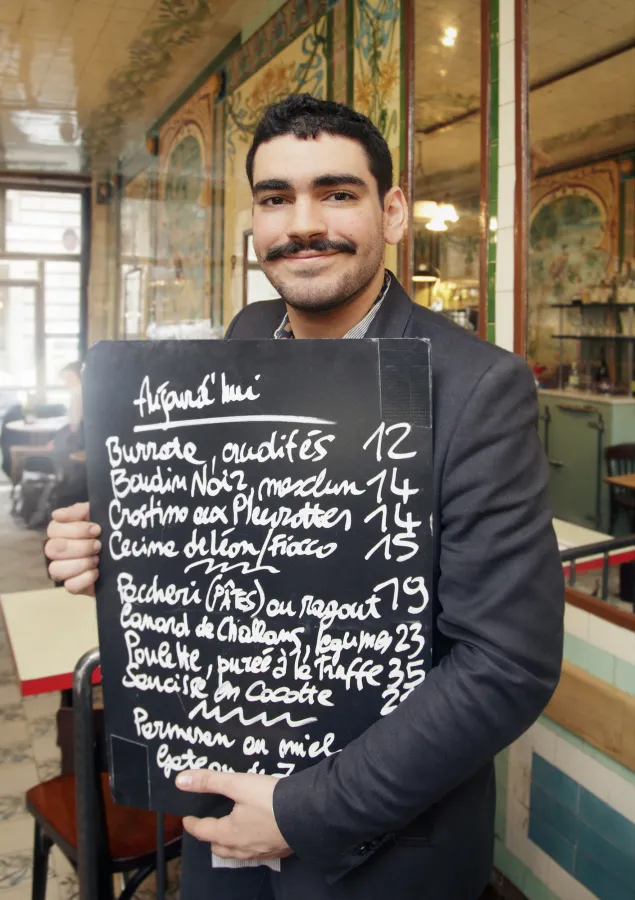 Aujourd'hui
Burrata, crudités 12
Boudin Noir, mesclun 14
Crostino aux Pleurottes 14
Cecina de léon/Fiocco 15
Paccheri (PÂTES) au ragout 19
Canard de Challans, legumes 23
Poulette, purée à la truffe 35
Saucisse en Cocotte
Parmesan au miel